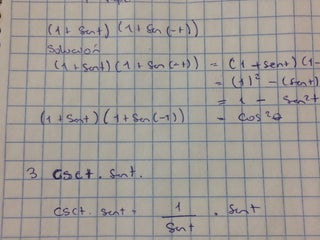 (1 + Sent) (1 + Sen(-t))
Solución
(1 + Sent) (1 + Sen(-t)) = (1 + Sent) (1-
= (1)² - (Sent)
= 1 - Sen²t
(1 + Sent) (1 + Sen(-t)) = Cos²
3 CSCt. Sent.
CSCt. Sent = 1/Sent . Sent